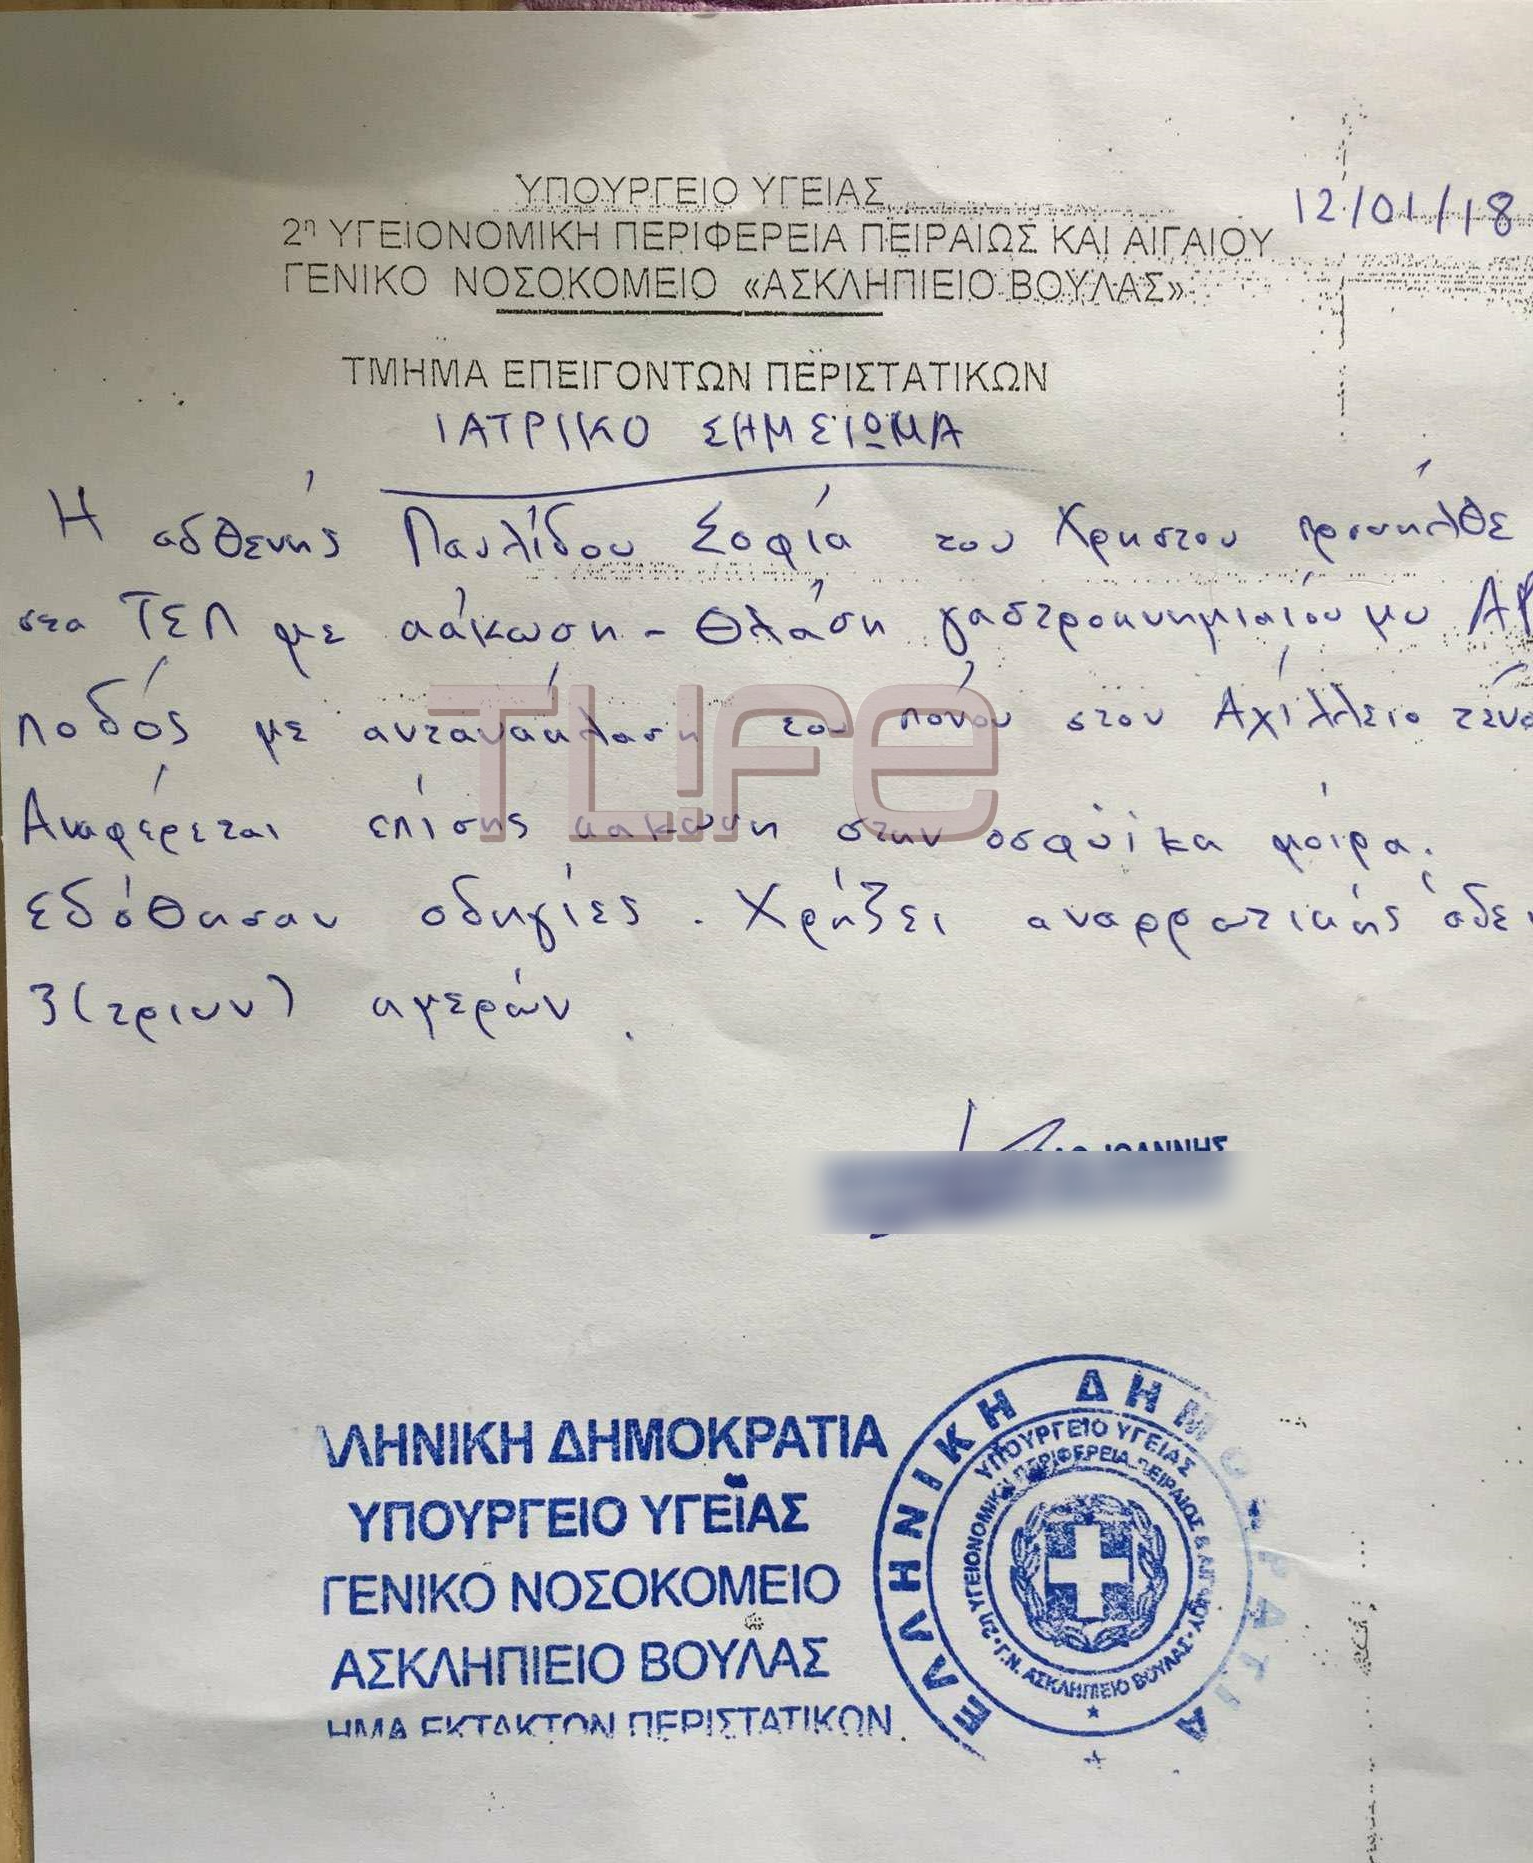 ΥΠΟΥΡΓΕΙΟ ΥΓΕΙΑΣ
12/01/18
2η ΥΓΕΙΟΝΟΜΙΚΗ ΠΕΡΙΦΕΡΕΙΑ ΠΕΙΡΑΙΩΣ ΚΑΙ ΑΙΓΑΙΟΥ
ΓΕΝΙΚΟ ΝΟΣΟΚΟΜΕΙΟ «ΑΣΚΛΗΠΙΕΙΟ ΒΟΥΛΑΣ»
ΤΜΗΜΑ ΕΠΕΙΓΟΝΤΩΝ ΠΕΡΙΣΤΑΤΙΚΩΝ
ΙΑΤΡΙΚΟ ΣΗΜΕΙΩΜΑ
Η ασθενής Παυλίδου Σοφία του Χρηστου προσήλθε
στα ΤΕΠ με κάκωση - Θλάση γαστροκνημιαίου μυ ΑΡ
ποδός με αντανάκλαση του πόνου στον Αχίλλειο τένο
Αναφέρεται επίσης κακωση στην οσφυϊκα μοίρα.
Εδόθησαν οδηγίες. Χρήζει αναρρωτικής άδει
3 (τριων) ημερών.
TLIFE
ΙΩΑΝΝΗΣ
ΛΛΗΝΙΚΗ ΔΗΜΟΚΡΑΤΙΑ
ΥΠΟΥΡΓΕΙΟ ΥΓΕΙΑΣ
ΓΕΝΙΚΟ ΝΟΣΟΚΟΜΕΙΟ
ΑΣΚΛΗΠΙΕΙΟ ΒΟΥΛΑΣ
ΗΜΑ ΕΚΤΑΚΤΩΝ ΠΕΡΙΣΤΑΤΙΚΩΝ
ΕΛΛΗΝΙΚΗ ΔΗΜΟΚΡΑΤΙΑ
ΥΠΟΥΡΓΕΙΟ ΥΓΕΙΑΣ
2η ΥΓΕΙΟΝΟΜΙΚΗ ΠΕΡΙΦΕΡΕΙΑ ΠΕΙΡΑΙΩΣ & ΑΙΓΑΙΟΥ
Γ.Ν. ΑΣΚΛΗΠΙΕΙΟ ΒΟΥΛΑΣ